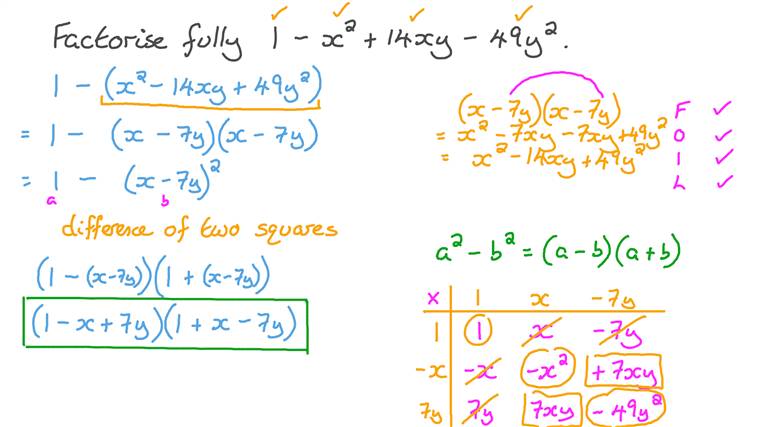 Factorise fully 1 − x² + 14xy − 49y².
1 − (x² − 14xy + 49y²)
= 1 − (x − 7y)(x − 7y)
= 1 − (x − 7y)²
a b
difference of two squares
(1 − (x−7y))(1 + (x−7y))
(1 − x + 7y)(1 + x − 7y)
(x − 7y)(x − 7y) F ✓
= x² − 7xy − 7xy + 49y² O ✓
= x² − 14xy + 49y² I ✓
L ✓
a² − b² = (a − b)(a + b)
× 1 x −7y
1 1 x −7y
−x −x −x² +7xy
7y 7y 7xy −49y²